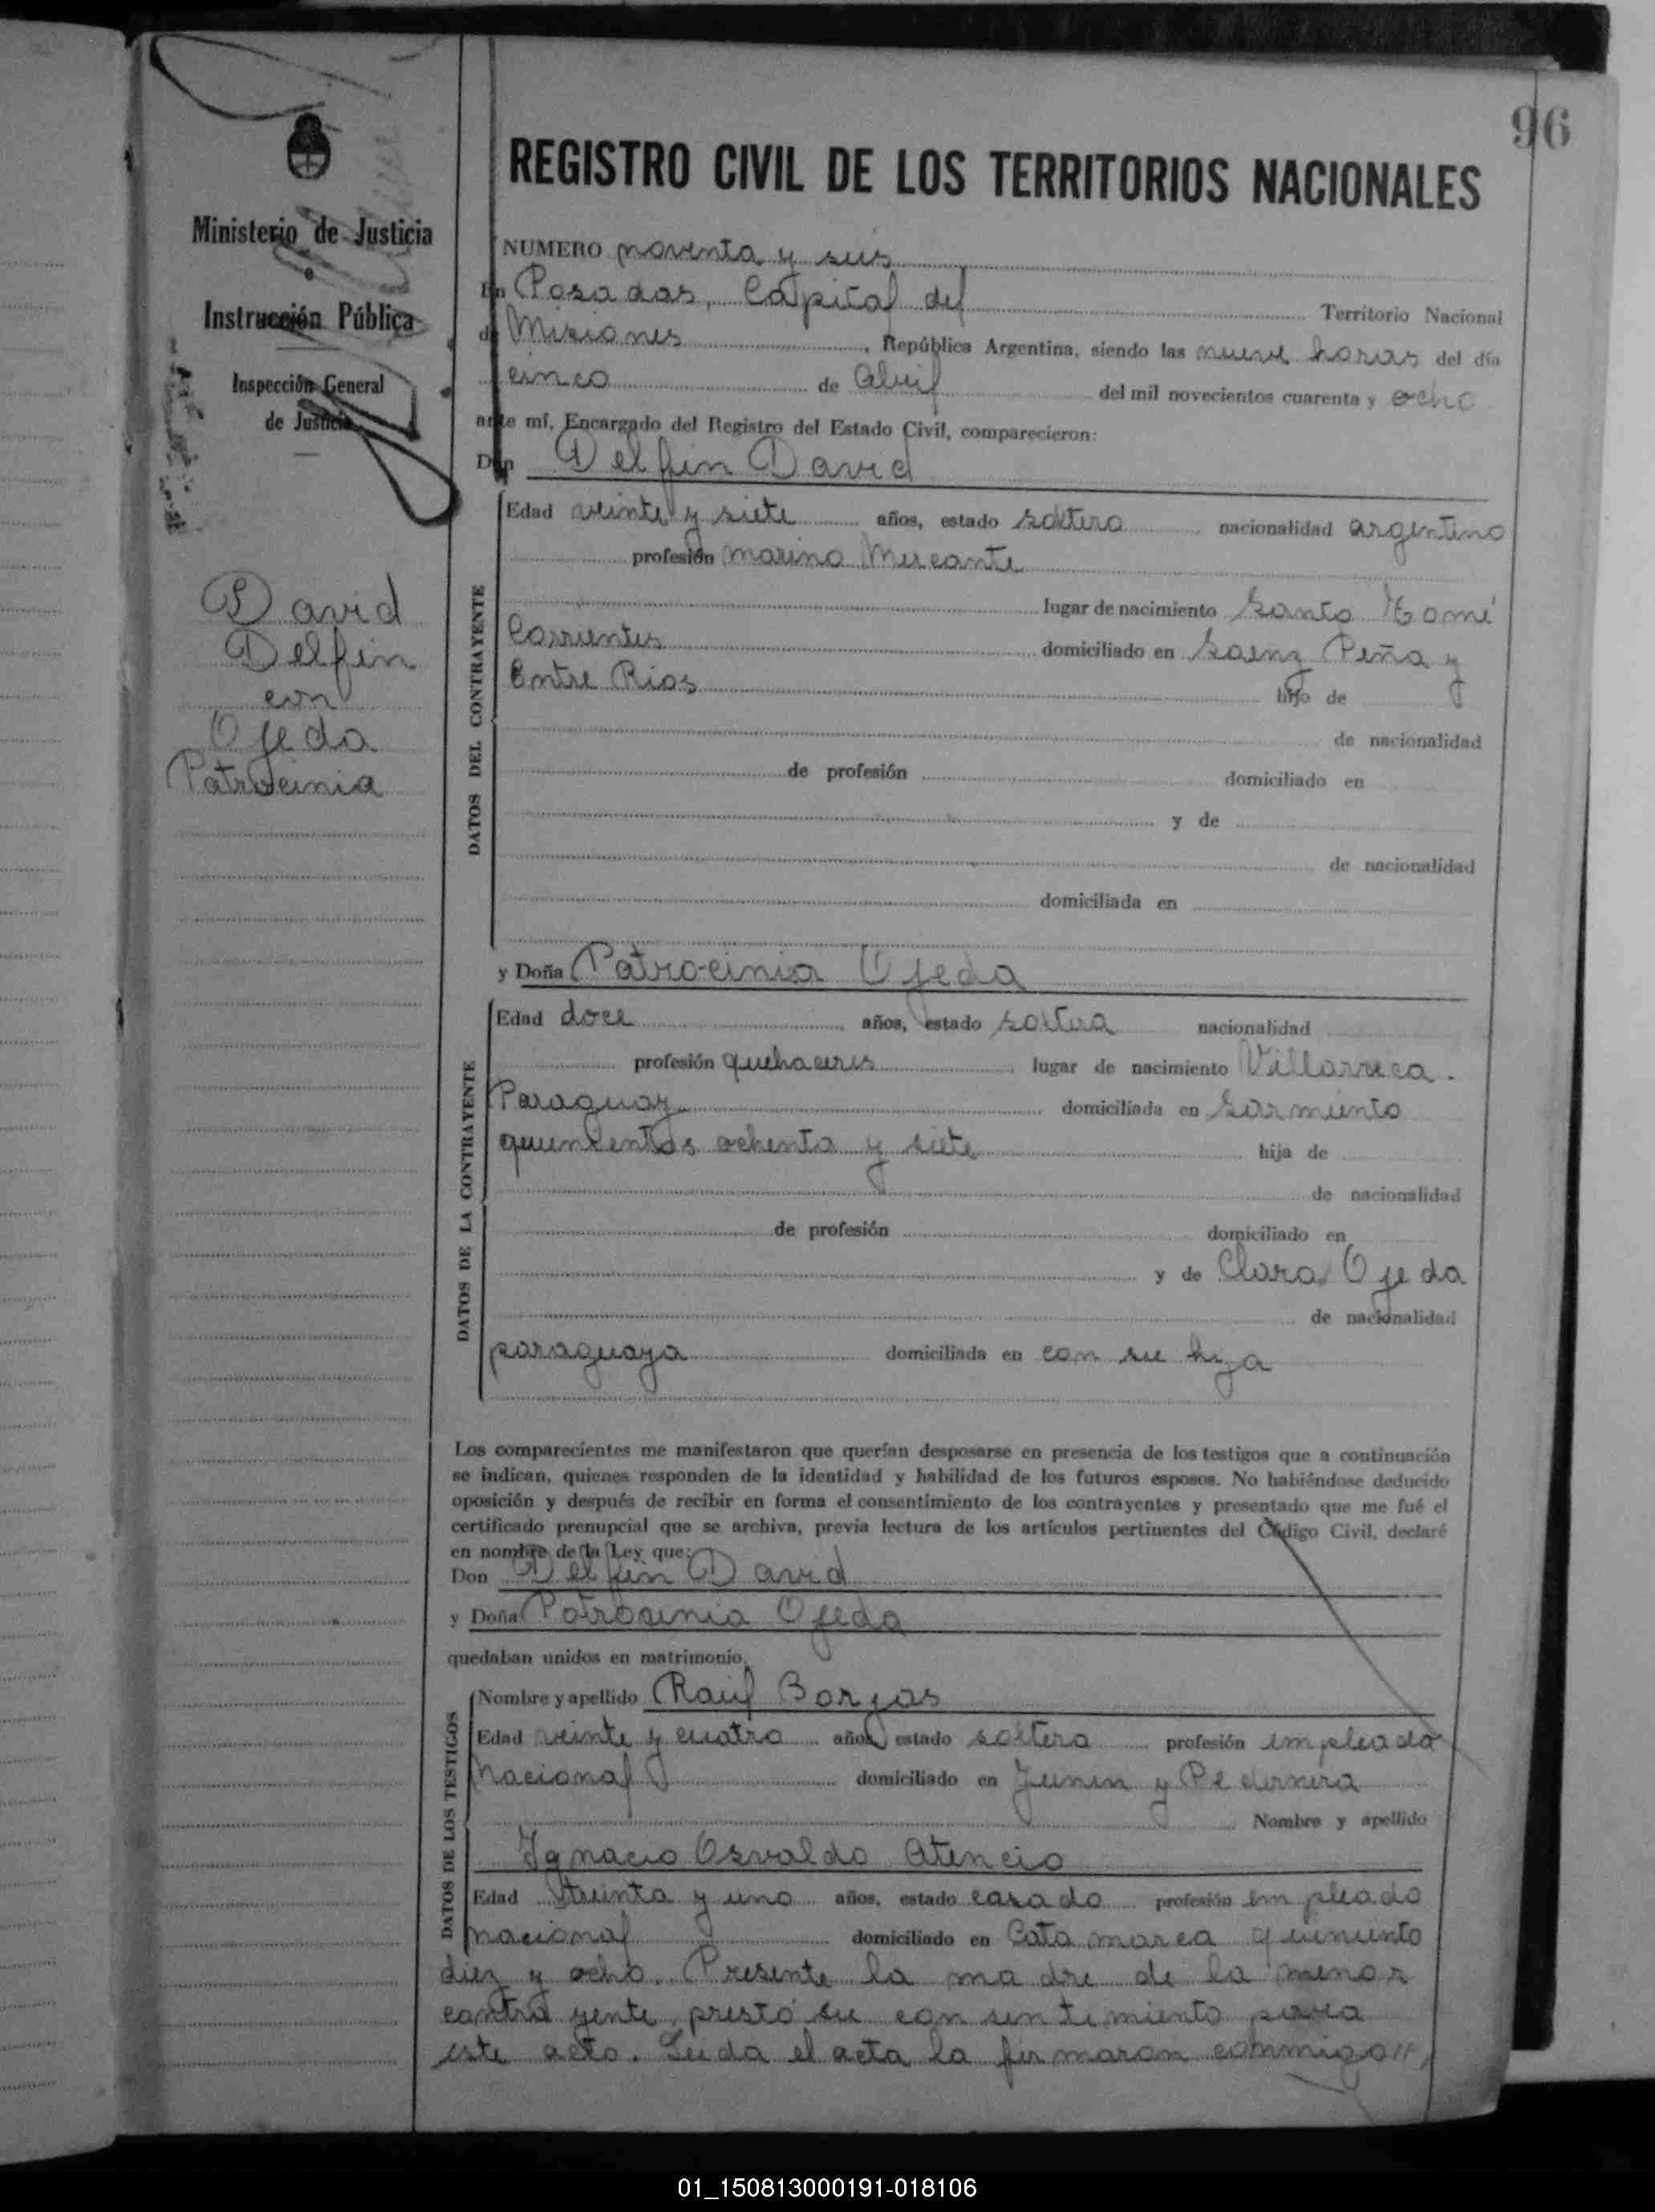 96
REGISTRO CIVIL DE LOS TERRITORIOS NACIONALES
Ministerio de Justicia
e
Instrucción Pública
Inspección General
de Justicia
David
Delfin
con
Ojeda
Patrocinia
NUMERO noventa y seis
En Posadas, Capital del Territorio Nacional
de Misiones, República Argentina, siendo las nueve horas del día
cinco de Abril del mil novecientos cuarenta y ocho
ante mí, Encargado del Registro del Estado Civil, comparecieron:
Don Delfin David
DATOS DEL CONTRAYENTE
Edad veinte y siete años, estado soltero nacionalidad argentino
profesión marino Mercante
lugar de nacimiento Santo Tomé
Corrientes domiciliado en Saenz Peña y
Entre Rios hijo de
de nacionalidad
de profesión domiciliado en
y de
de nacionalidad
domiciliada en
y Doña Patrocinia Ojeda
DATOS DE LA CONTRAYENTE
Edad doce años, estado soltera nacionalidad
profesión quehaceres lugar de nacimiento Villarrica.
Paraguay domiciliada en Sarmiento
quinientos ochenta y siete hija de
de nacionalidad
de profesión domiciliado en
y de Clara Ojeda
de nacionalidad
paraguaya domiciliada en con su hija
Los comparecientes me manifestaron que querían desposarse en presencia de los testigos que a continuación
se indican, quienes responden de la identidad y habilidad de los futuros esposos. No habiéndose deducido
oposición y después de recibir en forma el consentimiento de los contrayentes y presentado que me fué el
certificado prenupcial que se archiva, previa lectura de los artículos pertinentes del Código Civil, declaré
en nombre de la Ley que:
Don Delfin David
y Doña Patrocinia Ojeda
quedaban unidos en matrimonio.
DATOS DE LOS TESTIGOS
Nombre y apellido Raul Borjas
Edad veinte y cuatro años, estado soltero profesión empleado
Nacional domiciliado en Junin y Pedernera
Nombre y apellido
Ignacio Osvaldo Atencio
Edad treinta y uno años, estado casado profesión empleado
nacional domiciliado en Catamarca quiniento
diez y ocho. Presente la madre de la menor
contrayente, prestó su consentimiento para
este acto. Leida el acta la firmaron conmigo//
01_150813000191-018106